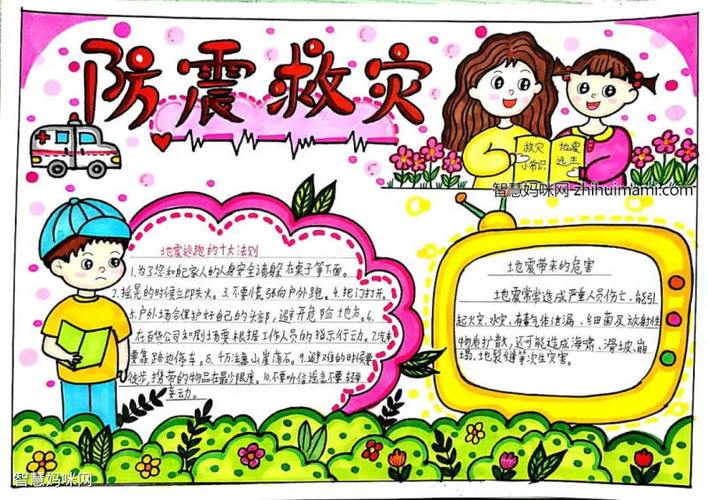 防震救灾
救灾
小常识
地震
逃生
智慧妈咪网 zhihuimami.com
地震逃跑的十大法则
1.为了您和自己家人的人身安全请躲在桌子等下面。
2.摇晃的时候立即失火。3.不要慌张向户外跑。4.把门打开。
5.户外场合保护好自己的头部,避开危险地方。6.
在百货公司和剧场要根据工作人员的指示行动。7.汽车
要靠路边停车。8.千万注意山崖落石。9.避难的时候要
徒步,携带的物品在最少限度。10.不要听信谣言不要轻举
妄动。
地震带来的危害
地震常常造成严重人员伤亡,能引
起火灾、水灾、有毒气体泄漏、细菌及放射性
物质扩散,还可能造成海啸、滑坡、崩
塌、地裂缝等次生灾害。
智慧妈咪网